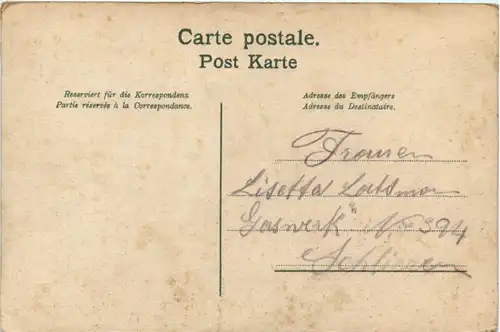 Carte postale.
Post Karte
Reserviert für die Korrespondenz
Partie réservée à la Correspondance.
Adresse des Empfängers
Adresse du Destinataire.
Frauen
Lisetta
Gaswerk No 394